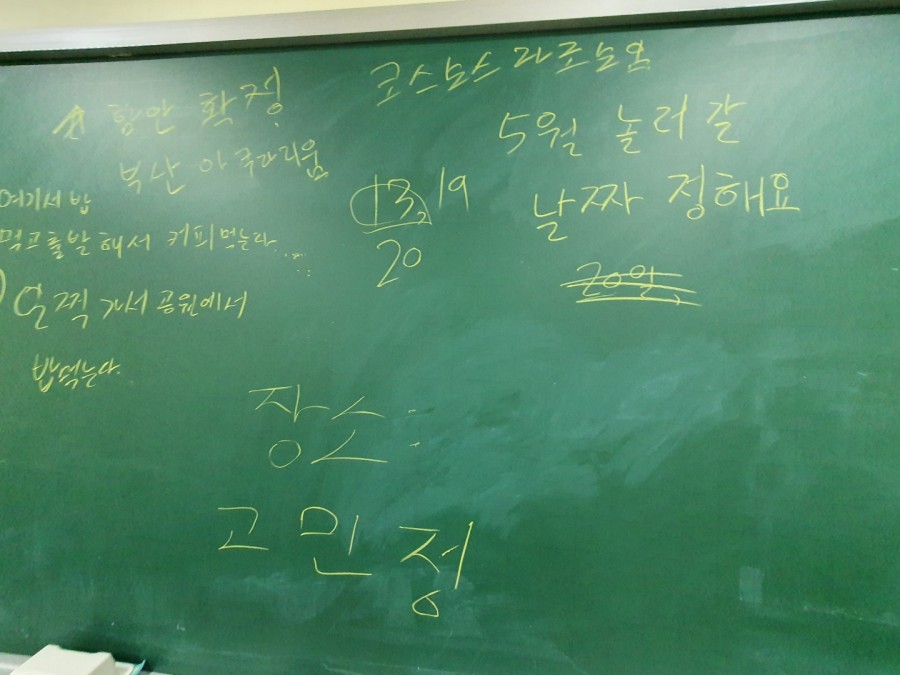 코스모스 라조보운
☆ 항안 확정
부산 아쿠아리움
여기서 밥
먹고출발해서 커피먹는다....
일찍 가서 공원에서
밥먹는다.
13, 19
20
5월 놀러갈
날짜 정해요
20일,
장소:
고민정